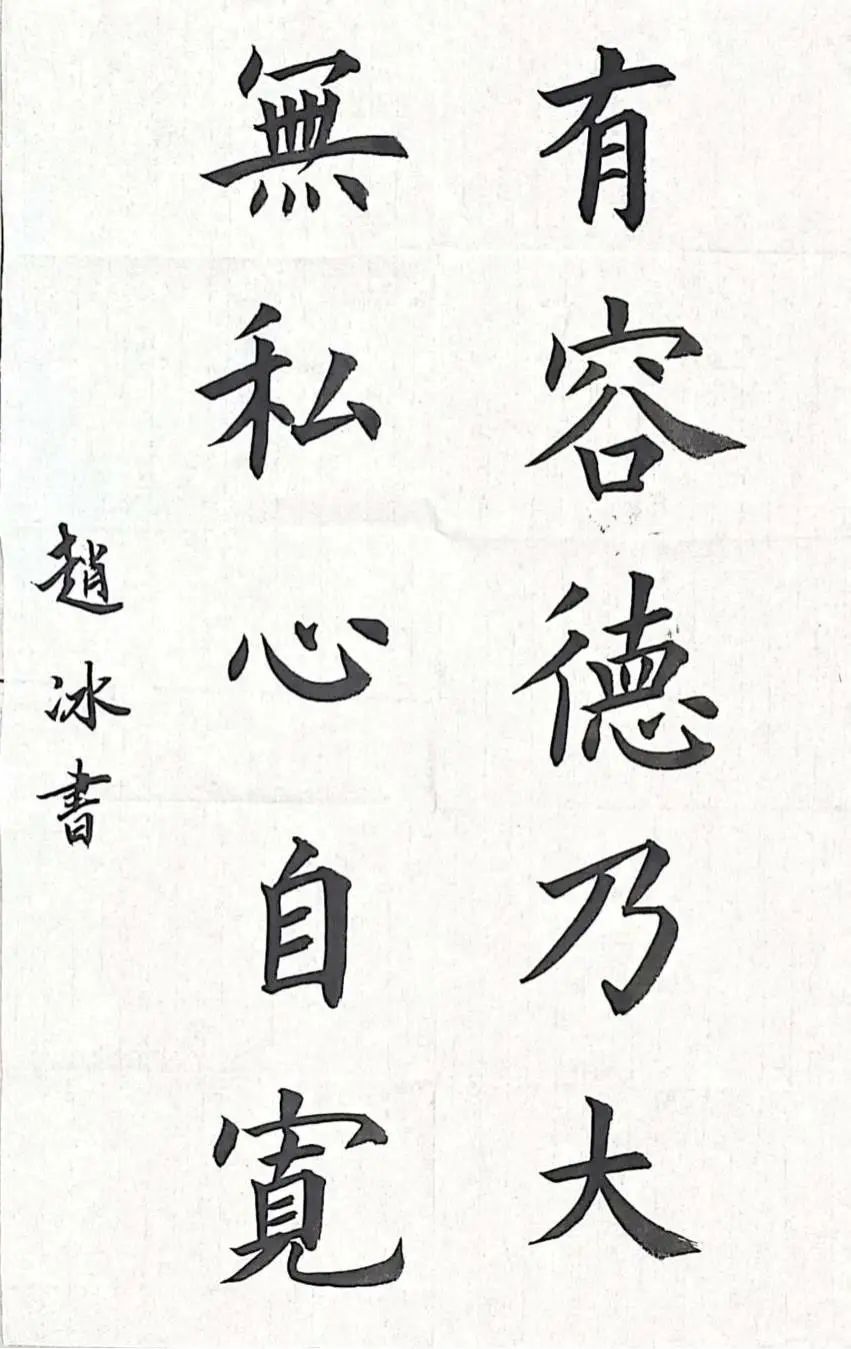 有容德乃大
無私心自寬
趙冰書